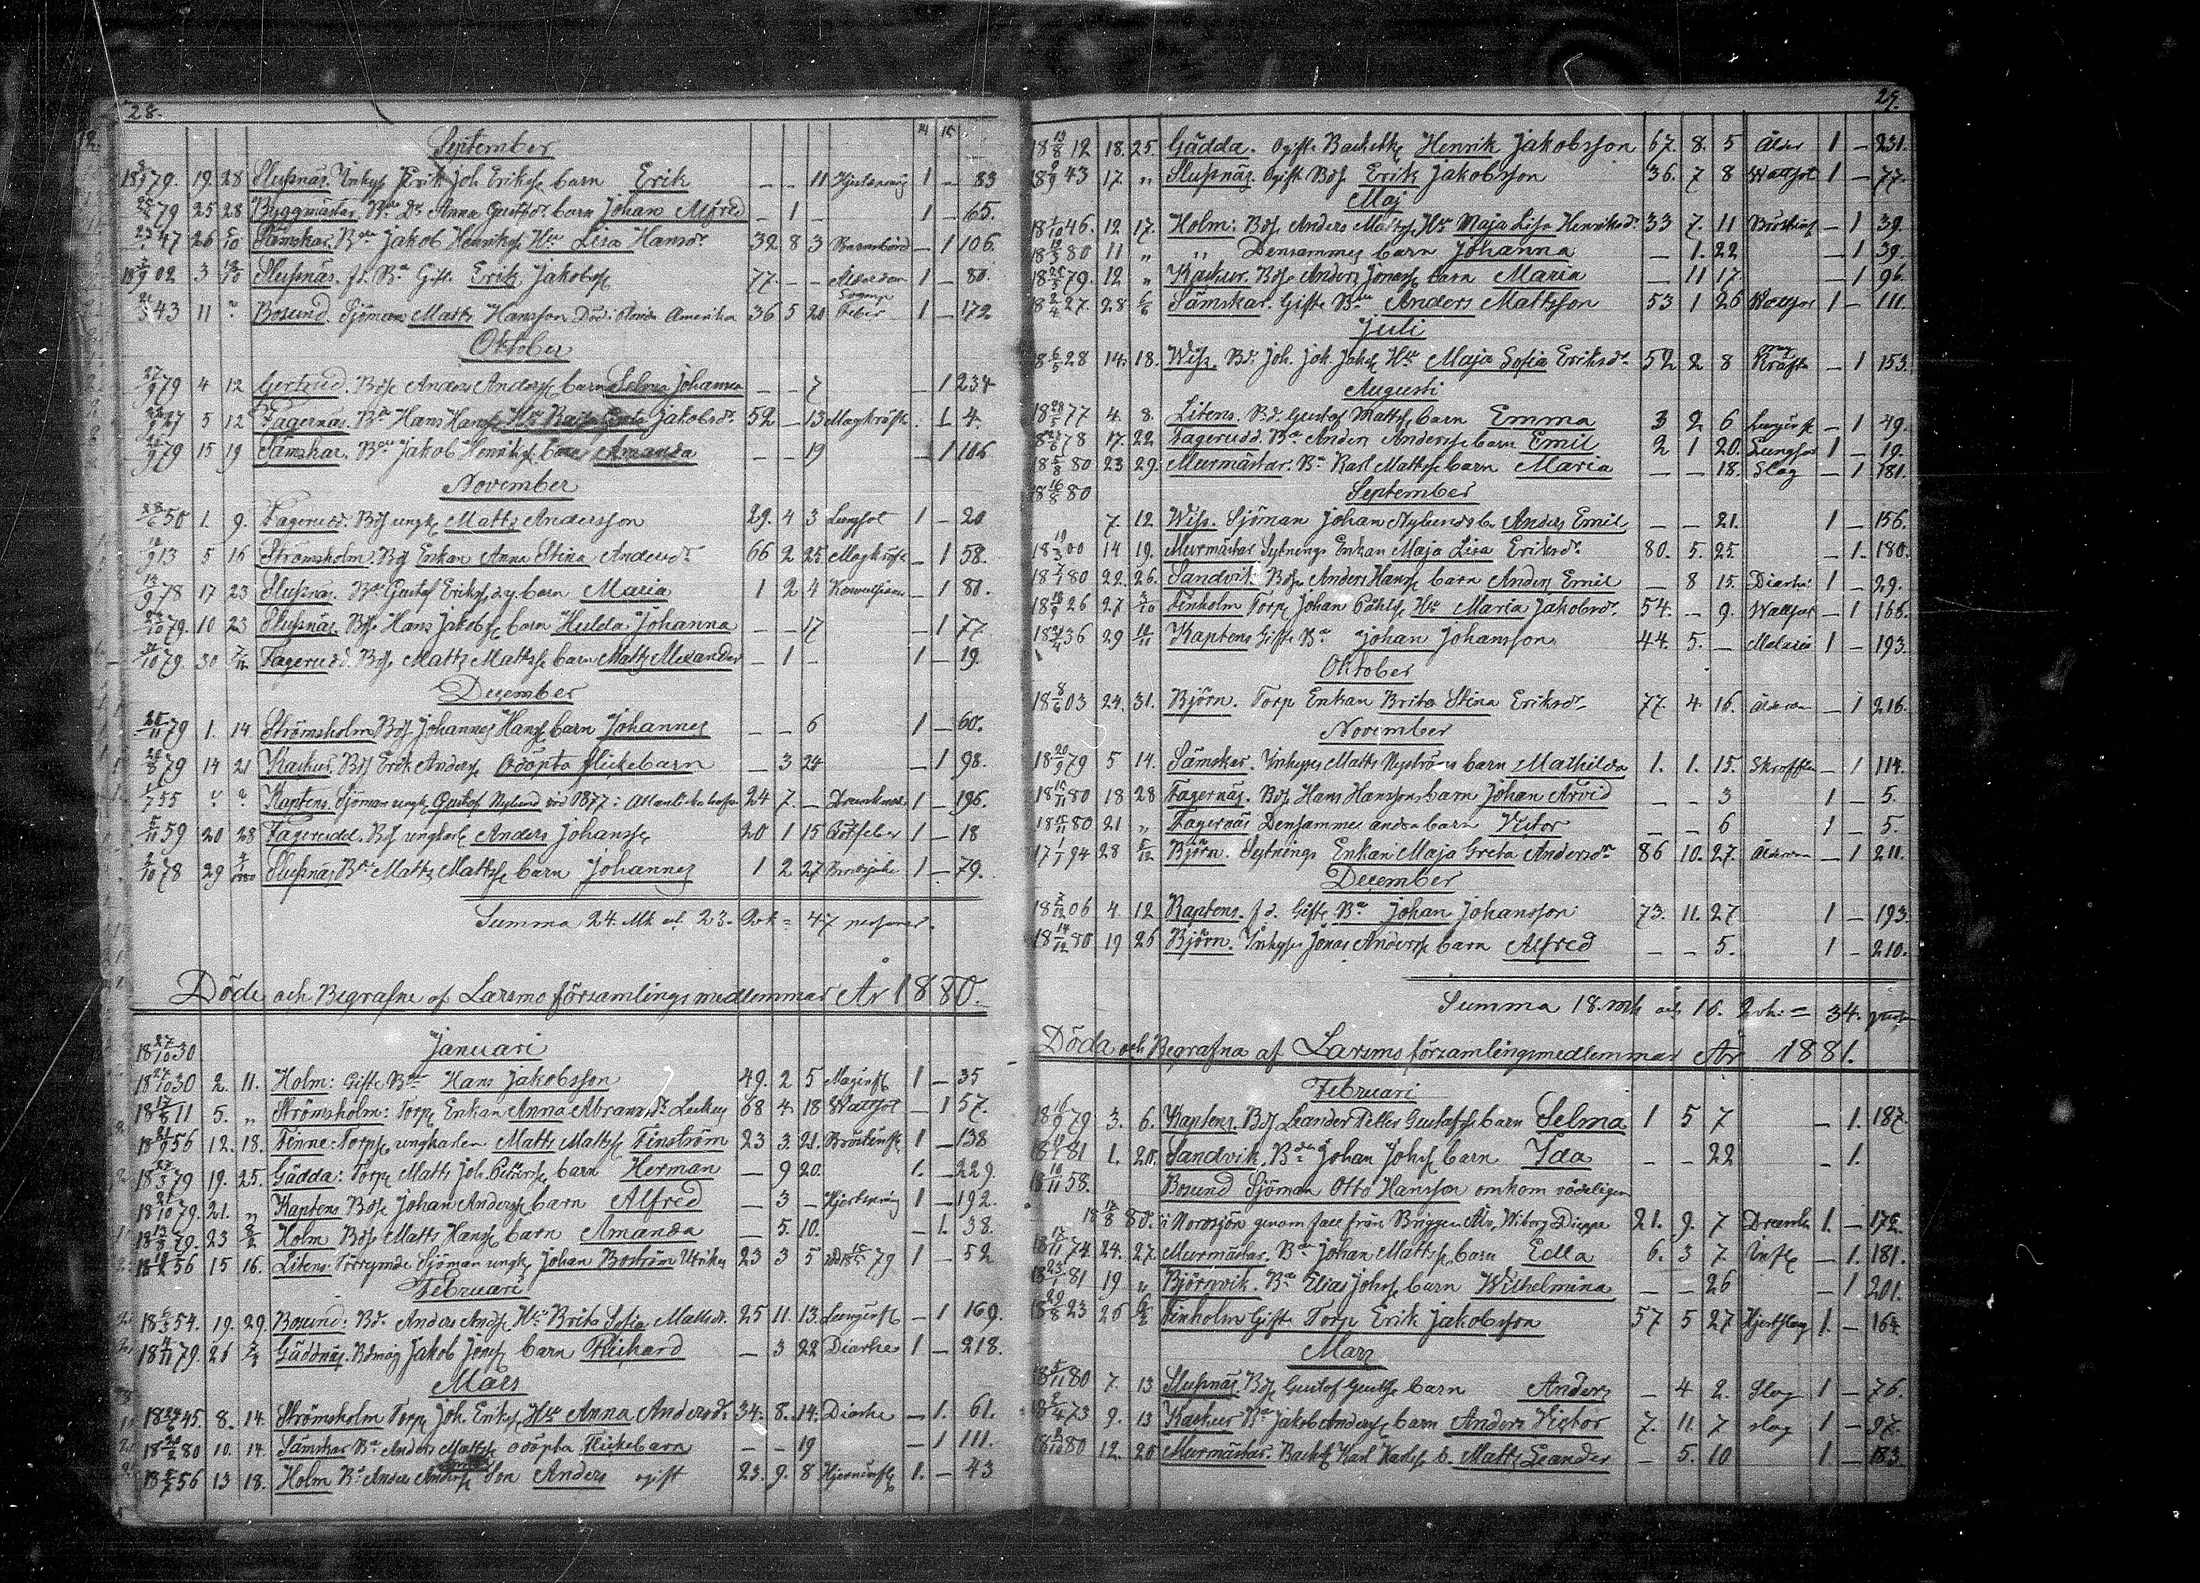 28.
September
18 8/9 79. 19. 28 Slußnäs. Inhys Erik Joh Eriks barn Erik — — 11 1 — 83
79 25 28 Byggmästar. Bde Dr Anna Gustfdr barn Johan Alfred — 1 — 1 — 65.
47 26 5/10 Sämskar. Bde Jakob Henriks Hu Lisa Hansdr 32 8 3 Barnsbörd — 1 106.
18 02 3 Slußnäs. fd. Be Gifte Erik Jakobss 77. — — Ålderdom 1 — 80.
43 11 " Bosund. Sjöman Matts Hansson Död i Norda Amerika 36 5 20 feber 1 — 172
Oktober
27/9 79 4 12 Gertrud. Bds Anders Anderss barn Selma Johanna — — 7 — 1 234
27 5 12 Fagernäs. Be Hans Hans Hu Jakobsdr 52 — 13 Magkräfta . 1 4.
79 15 19 Sämskar. Be Jakob Henriks barn Amanda — — 19 — 1 106
November
28/6 50 1. 9. Fagerudd. Bds ungk. Matts Andersson 29. 4 3 Lungsot 1 — 20
13 5 16 Strömsholm. Bds Enkan Anna Stina Andersdr 66 2 25 Magkräfta — 1 58.
13/9 78 17 23 Slußnäs. Bde Gustaf Eriks barn Maria 1 2 4 — 1 80.
79. 10 23 Slußnäs Bds Hans Jakobs barn Hulda Johanna — — 17 — 1 77.
/10 79. 30 Fagerudd. Bds Matts Mattss barn Matts Alexander — 1 — 1 — 19.
December
25/11 79 1. 14 Strömsholm Bds Johannes Hans barn Johannes — — 6 1 — 60.
/8 79 14 21 Kackur. Bds Erik Anders Odöpta flickebarn — 3 24 — 1 98.
/7 55 " " Kaptens. Sjöman ungk. Gustaf Nylund död 1877 i Atlantiska hafvet 24 7. — 1 — 196.
5/11 59 20 28 Fagerudd. Bds ungkarl Anders Johanss 20 1 15 1 — 18
/10 78 29 Slußnäs Bde Matts Mattss barn Johannes 1 2 27 1 — 79.
Summa 24. Mk och 23. Qvk = 47 personer.
Döde och Begrafne af Larsmo församlingsmedlemmar År 1880.
18 27/10 30 Januari
18 27/10 30 2. 11. Holm: Gifte Bde Hans Jakobsson 49. 2 5 1 — 35
18 17/8 11 5. „ Strömsholm: Torp. Enkan Anna Abramsdr 68 4 18 Wattsot — 1 57.
18 56 12. 18. Finne: Torps ungkarlen Matts Matts Finström 23 3. 21. Bröstinfl 1 — 138
18 /3 79 19. 25. Gädda: Torp. Matts Joh. Petterss barn Herman — 9 20. 1. — 229.
18 21/10 79. 21. „ Kaptens Bds Johan Anderss barn Alfred — 3 — 1 — 192.
18 79. 23 Holm Bds Matts Hans barn Amanda — 5. 10. — 1. 38.
18 56 15 16. Litens Förrymde Sjöman ungk. Johan Boström Utrikes 23 3 5 79 1 — 52
Februari
18 6/3 54. 19. 29. Bosund: Bde Anders Ands Hu Brita Sofia Mattsdr. 25 11. 13. Lunginfl — 1 169.
18 4/11 79. 26 Gäddnäs. Bdmåg Jakob Jons barn Rickard — 3 22 Diarhe 1 — 218.
Mars
18 45. 8. 14. Strömsholm Torp. Joh. Eriks Hu Anna Andersdr 34. 8. 14. Diarhe — 1. 61.
18 20/2 80 10. 14. Sämskar Be Anders Matts odöpta Flickebarn — — 19 — 1 111.
18 56 13 18. Holm Be Anders Anders Son Anders ogift 23. 9. 8 Hjerninfl 1. — 43
29.
18 13/8 12 18. 25. Gädda. Ogifte Backstk Henrik Jakobsson 67. 8. 5 Ålder 1 — 231.
18 9/9 43 17. „ Slußnäs. Ogift Bds Erik Jakobsson 36. 7 8 Wattsot 1 — 77.
Maj
18 1/10 46. 12 17. Holm: Bds Anders Matts Hu Maja Lisa Henriksdr 33 7. 11 — 1 39.
18 19/3 80 11 „ „ Densammes barn Johanna — 1. 22 — 1 39.
18 25/5 79 12 „ Kackur. Bds Anders Jonass barn Maria — 11 17. — 1 96.
18 2/4 27. 28 Sämskar. Gifte Bde Anders Mattsson 53 1 26 Wattsot 1 — 111.
Juli
18 6/5 28 14. 18. Wiss. Bd. Joh. Joh. Jakobs Hu Maja Sofia Eriksdr. 52 2 8 mag Kräfta — 1 153.
Augusti
18 28/5 77 4. 8. Litens. Bd. Gustaf Matts barn Emma 3 2 6 — 1 49.
18 78 17. 22. Fagerudd. Be Anders Anderss barn Emil 2 1 20. 1 — 19.
18 5/8 80 23 29. Murmästar. Be Karl Matts barn Maria — — 18. Slag — 1 181.
18 16/8 80 September
7. 12. Wiss. Sjöman Johan Nylunds b. Anders Emil — — 21. 1 — 156.
18 19/3 00 14 19. Murmästar Sytnings Enkan Maja Lisa Eriksdr. 80. 5. 25. — 1. 180.
18 7/1 80 22. 26. Sandvik. Bds Anders Hans barn Anders Emil — 8 15. Diarhe 1 — 29.
18 26 27 Finholm Torp. Johan Påhls Hu Maria Jakobsdr. 54. — 9. Wattsot — 1 166.
18 36 29 Kaptens Gifte Be Johan Johansson 44. 5. — Malaria 1 — 193.
Oktober
18 8/6 03 24. 31. Björn. Torp Enkan Brita Stina Eriksdr. 77. 4. 16. — 1 216.
November
18 20/9 79 5 14. Sämskar. Inhyses Matts Nyströms barn Mathilda 1. 1. 15. — 1 114.
18 15/11 80 18 28 Fagernäs. Bds Hans Hanssons barn Johan Arvid — — 3 1 — 5.
18 15/11 80 21 „ Fagernäs Densammes andra barn Victor — — 6 1 — 5.
17 1/1 94 28 5/12 Björn. Sytnings Enkan Maja Greta Andersdr 86 10. 27. — 1 211.
December
18 06 4. 12 Kaptens. f.d. Gifte Be Johan Johansson 73. 11. 27 1 — 193.
18 14/12 80 19 26 Björn. Inhyses Jonas Anderss barn Alfred — — 5. 1 — 210.
Summa 18. mk och 16. Qvk = 34. pers
Döda och Begrafna af Larsmo församlingsmedlemmar År 1881.
Februari
18 16/9 79 3. 6. Kaptens. Bds Leander Petter Gustafs barn Selma 1 5 7 — 1. 187.
18 81 1. 20. Sandvik. Bde Johan Johs barn Ida — — 22 — 1.
18 10/11 58. Bosund Sjöman Otto Hansson omkom nödeligen
18 17/8 80. i Nordsjön genom fall från Briggen Wiborg Dieppe 21. 9. 7 1. — 172.
18 17/11 74 24. 27. Murmästar. Be Johan Matts barn Edla 6. 3 7 Infl — 1. 181.
18 23/1 81 19 „ Björnvik. Be Elias Johs barn Wilhelmina — — 26 — 1 201.
18 29/8 23 26 Finholm Gifte Torp. Erik Jakobsson 57 5 27 Hjertslag 1. — 164.
Mars
18 5/11 80 7. 13 Slußnäs. Bds Gustaf Gusts barn Anders — 4 2. Slag 1 — 76.
18 2/4 73 9. 13 Kackur Be Jakob Anders barn Anders Victor 7. 11. 7 slag 1 — 97.
18 80 12. 20 Murmästar. Backstk Karl Karls b. Matts Leander — 5. 10 1 — 183.